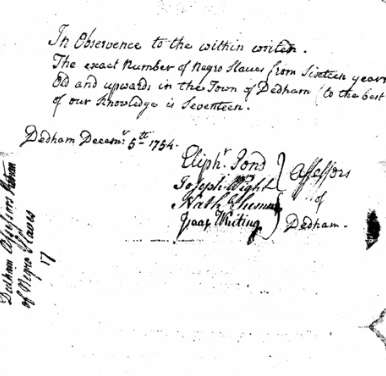 In Observence to the within writen.
The exact Number of Negro Slaves from Sixteen years
Old and upwards in the Town of Dedham (to the best
of our Knowledge is Seventeen.
Dedham Decemr. 5th 1754.
Eliphr. Pond
Joseph Wight
Nath Sumner
Isaac Whiting
Assessors
of
Dedham.
Dedham Assessors
of Negro Slaves
17